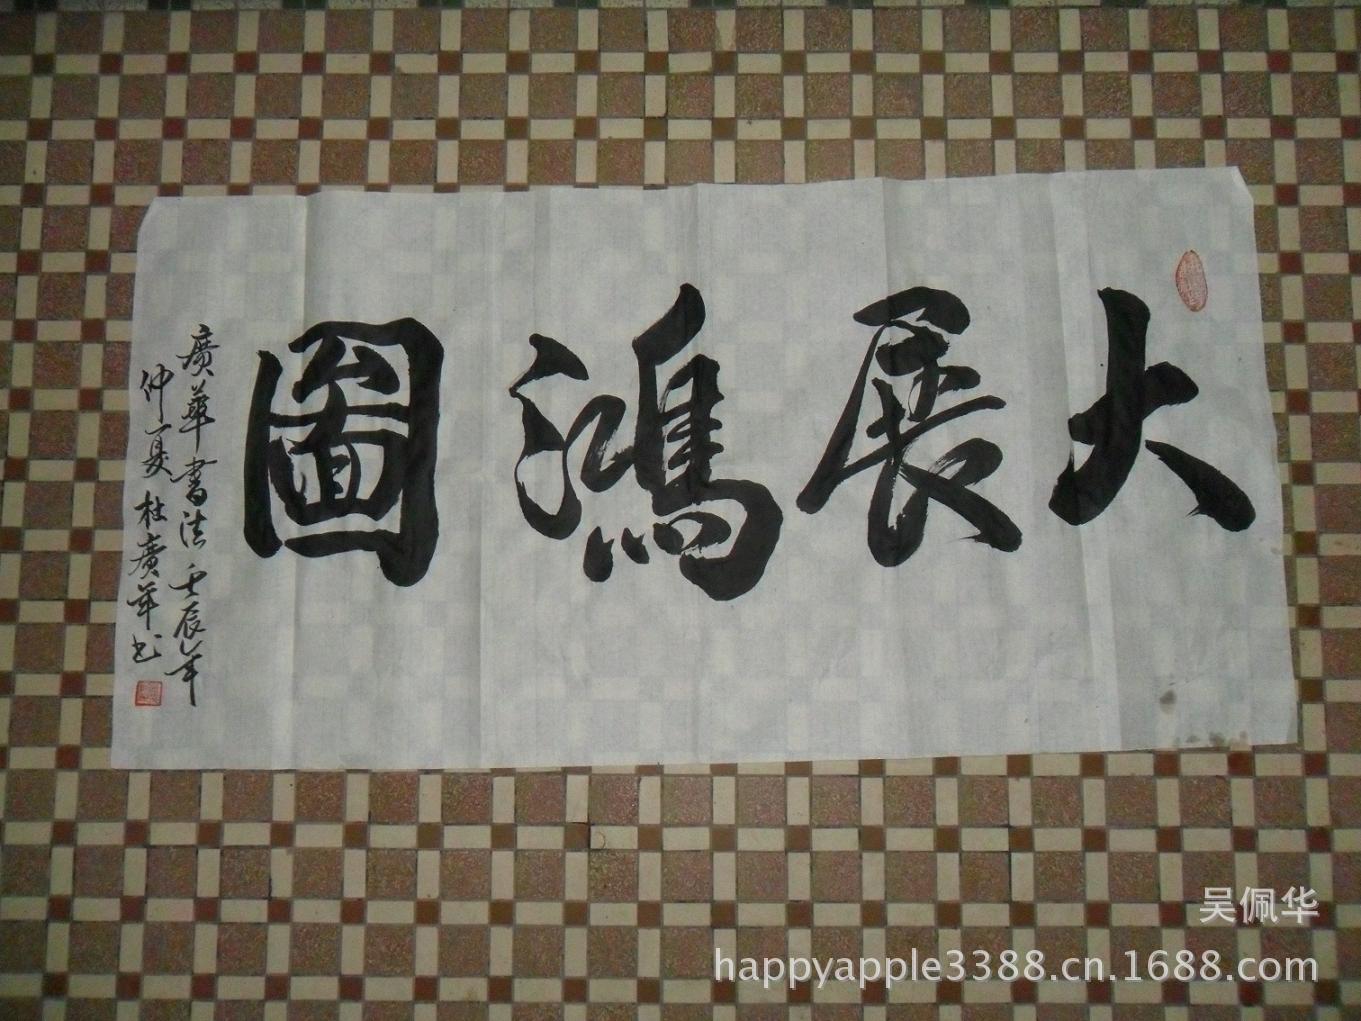 大展鴻圖
廣華書法壬辰年
仲夏杜廣華书
吴佩华
happyapple3388.cn.1688.com